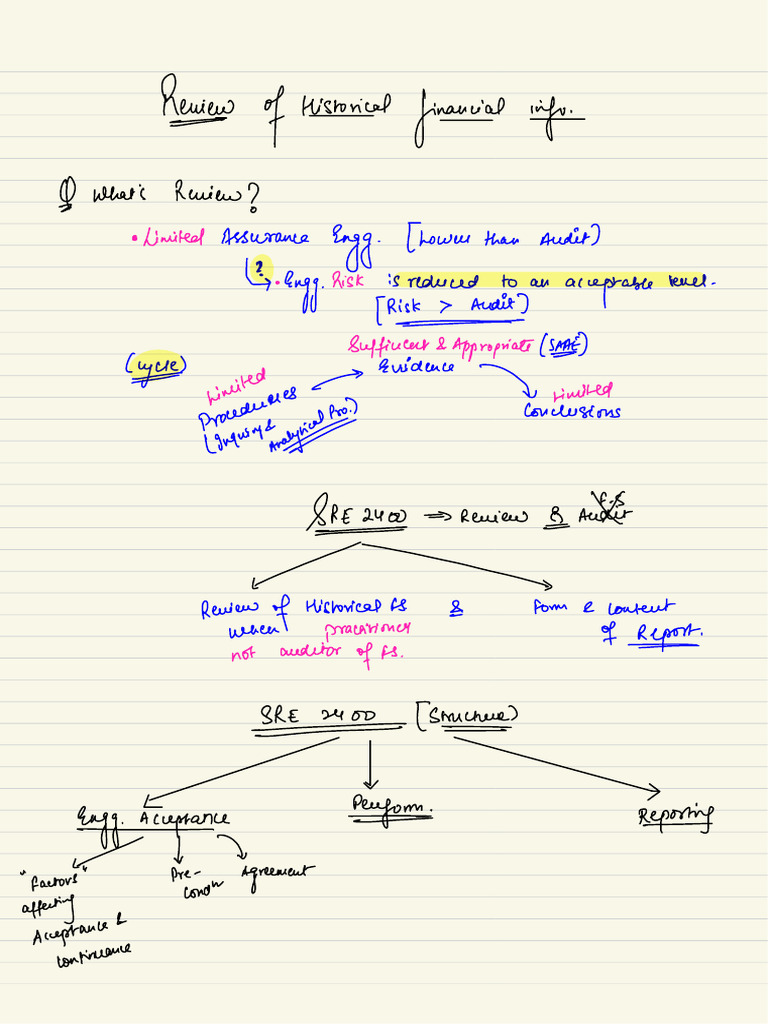 Review of Historical financial info.
Q What's Review?
• Limited Assurance Engg. [Lower than Audit)
? • Engg. Risk is reduced to an acceptable level.
[Risk > Audit)
Sufficient & Appropriate (SAAE)
(cycle)
Evidence
Limited
Procedures
(Inquiry &
Analytical Pro.)
Limited
Conclusions
F.S
SRE 2400 ⇒ Review & Audit
Review of Historical FS & form & content
when practitioner of Report.
not auditor of FS.
SRE 2400 [Structure)
Engg. Acceptance Perform. Reporting
"Factors" Pre- Agreement
affecting condn
Acceptance &
continuance